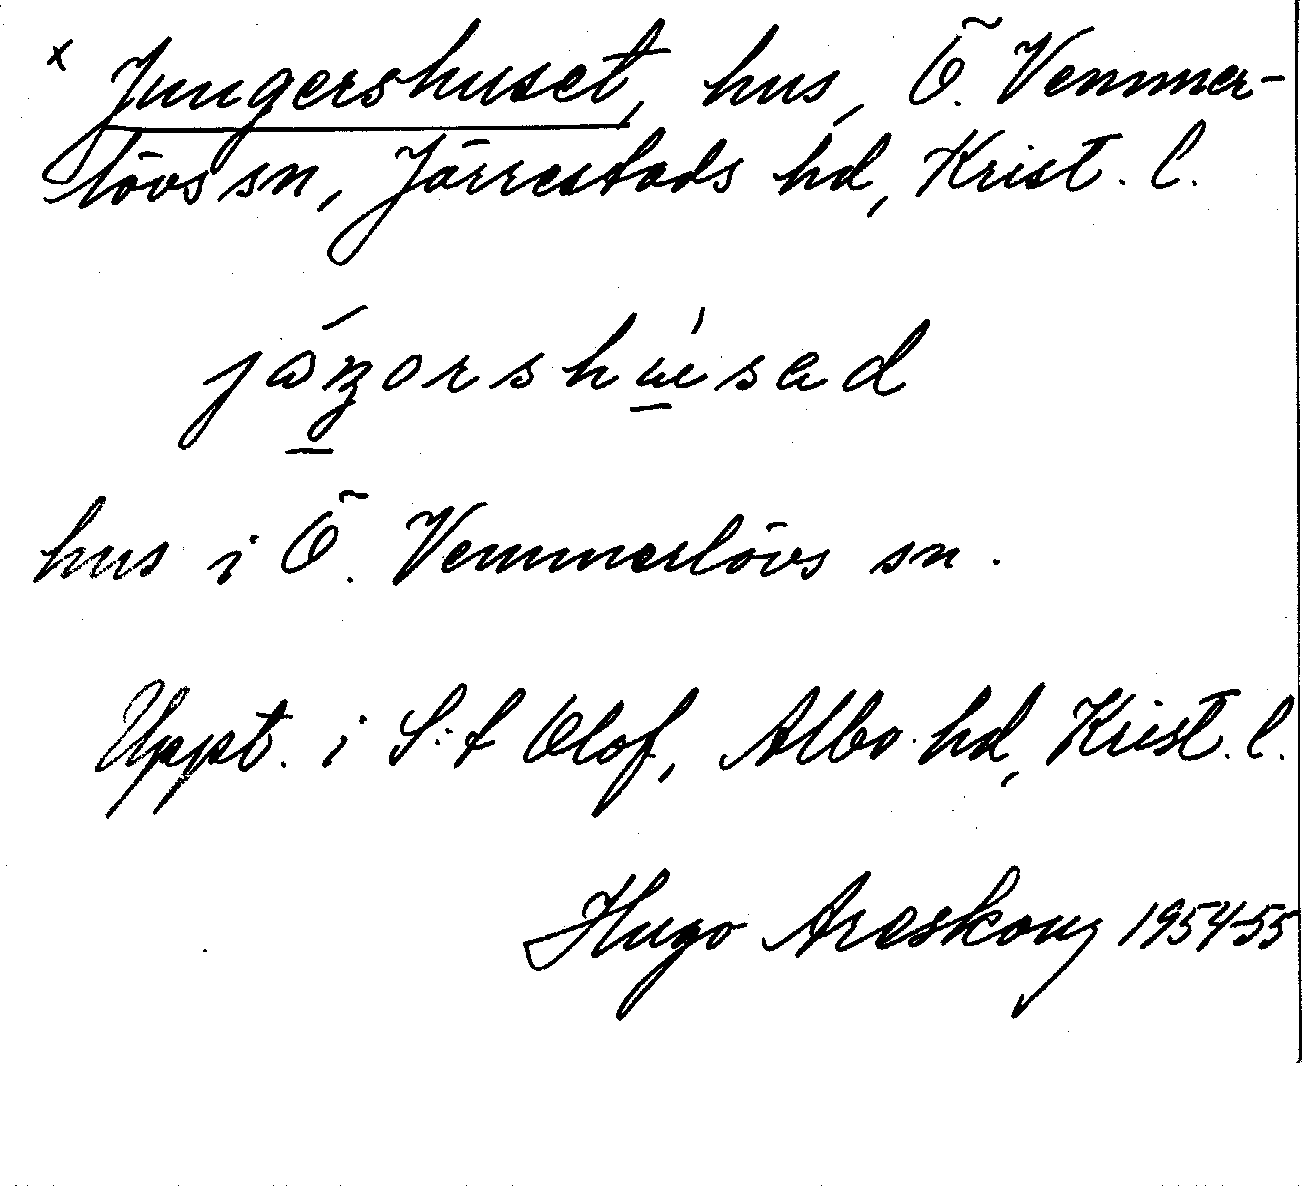 x Jungershuset, hus, Ö. Vemmer-
lövs sn, Järrestads hd, Krist. l.
hus i Ö. Vemmerlövs sn.
Uppt. i S:t Olof, Albo hd, Krist. l.
Hugo Areskoug 1954-55